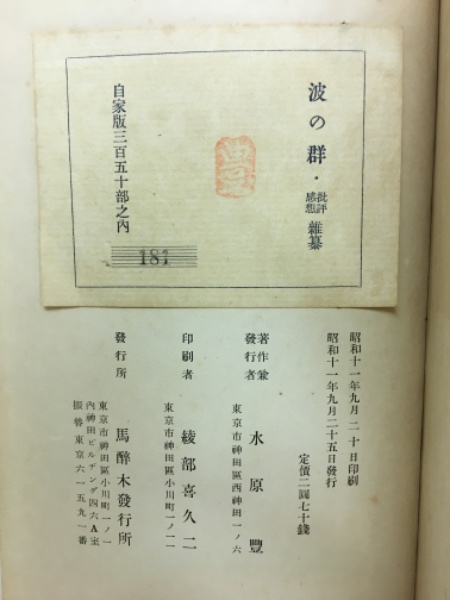 波の群・批評感想雜纂
自家版三百五十部之內
181
昭和十一年九月二十日印刷
昭和十一年九月二十五日發行
定價二圓七十錢
著作兼發行者
水原豐
東京市神田區西神田一ノ六
印刷者
綾部喜久二
東京市神田區小川町一ノ一一
發行所
馬醉木發行所
東京市神田區小川町一ノ一
內神田ビルヂング四六A室
振替東京六一五九一番